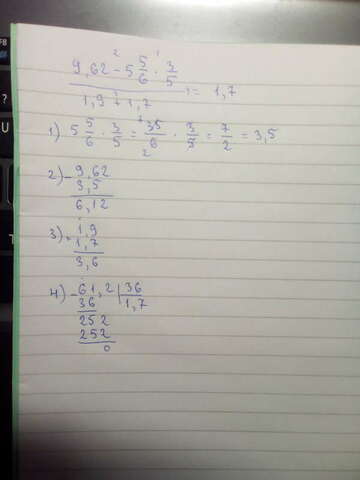 9,62 - 5 5/6 · 3/5
1,9 + 1,7
= 1,7
1) 5 5/6 · 3/5 = 35/6 · 3/5 = 7/2 = 3,5
2) - 9,62
3,5
6,12
3) + 1,9
1,7
3,6
4) - 61,2 | 36
36 | 1,7
252
252
0